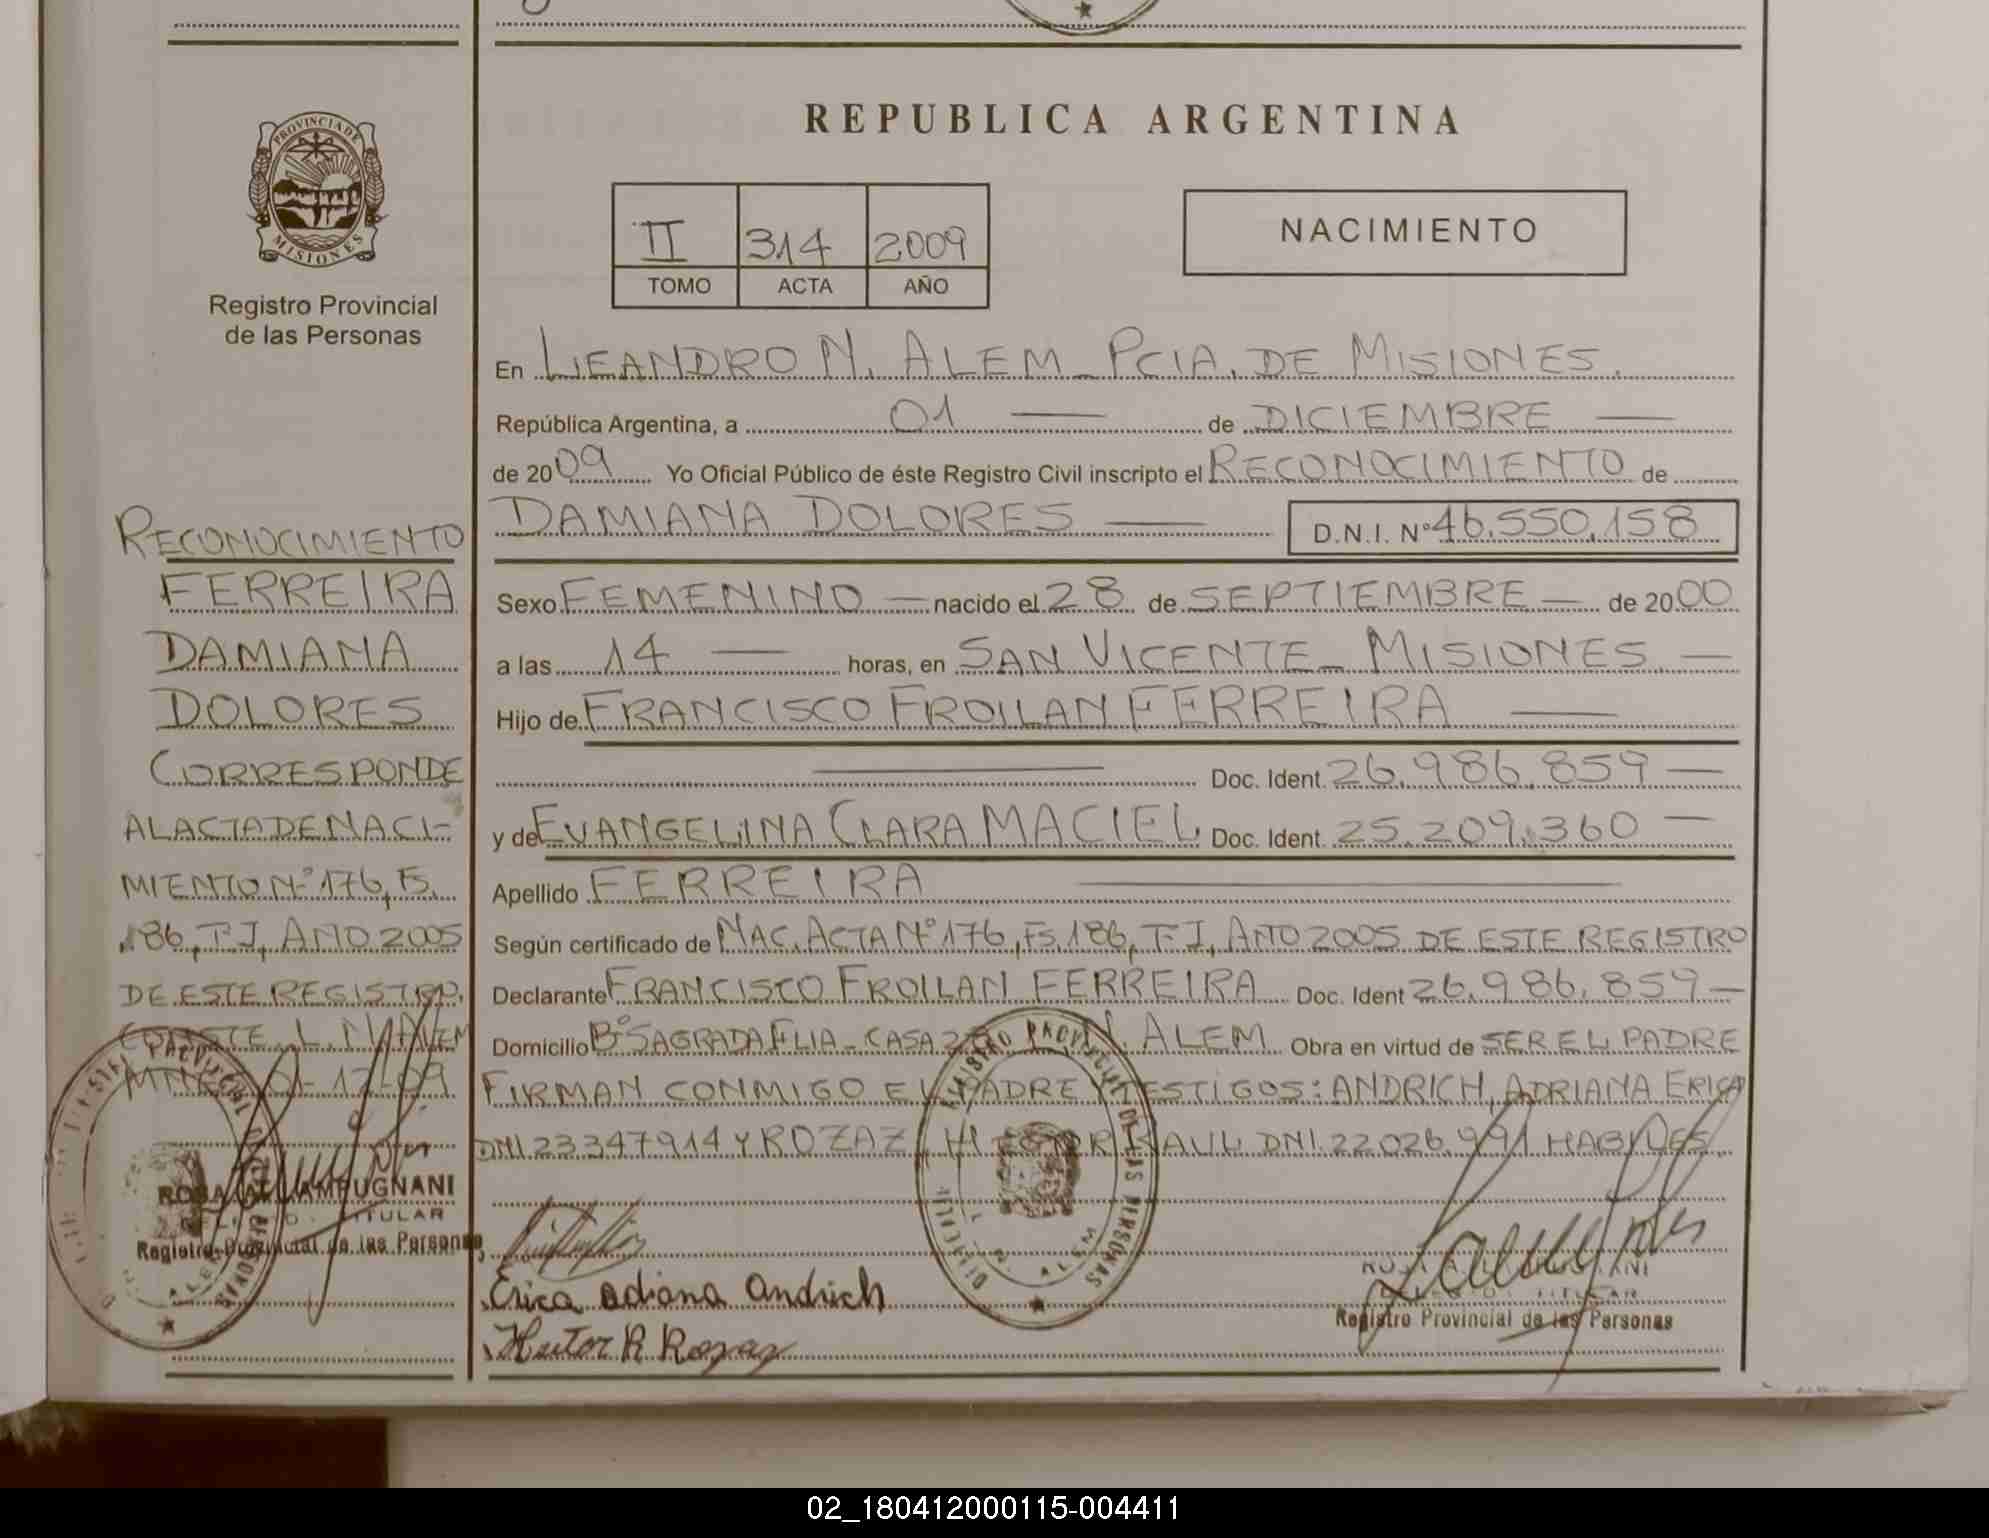 REPUBLICA ARGENTINA
PROVINCIA DE
MISIONES
Registro Provincial
de las Personas
II 314 2009
TOMO ACTA AÑO
NACIMIENTO
En LEANDRO N. ALEM - PCIA. DE MISIONES.
República Argentina, a 01 — de DICIEMBRE —
de 2009 Yo Oficial Público de éste Registro Civil inscripto el RECONOCIMIENTO de
DAMIANA DOLORES — D.N.I. Nº 46.550.158
Sexo FEMENINO — nacido el 28 de SEPTIEMBRE — de 2000
a las 14 — horas, en SAN VICENTE - MISIONES —
Hijo de FRANCISCO FROILAN FERREIRA —
— Doc. Ident. 26.986.859 —
y de EVANGELINA CLARA MACIEL Doc. Ident. 25.209.360 —
Apellido FERREIRA —
Según certificado de NAC. ACTA Nº 176, Fs. 186, T. I, AÑO 2005 DE ESTE REGISTRO
Declarante FRANCISCO FROILAN FERREIRA Doc. Ident 26.986.859 —
Domicilio Bº SAGRADA FLIA - CASA N. ALEM Obra en virtud de SER EL PADRE
FIRMAN CONMIGO EL PADRE Y TESTIGOS: ANDRICH, ADRIANA ERICA
DNI. 23347914 Y ROZAZ HECTOR RAUL DNI. 22026.991 HABILES.
Erica Adriana Andrich
Hector R Rozaz
REGISTRO PROVINCIAL DE LAS PERSONAS
L. N. ALEM
Registro Provincial de las Personas
RECONOCIMIENTO
FERREIRA
DAMIANA
DOLORES
CORRESPONDE
AL ACTA DE NACI-
MIENTO Nº 176, Fs.
186, T. I, AÑO 2005
DE ESTE REGISTRO.
CONSTE. L. N. ALEM
MNES. 01-12-09
ROSA A. LAMPUGNANI
TITULAR
Registro Provincial de las Personas
02_180412000115-004411